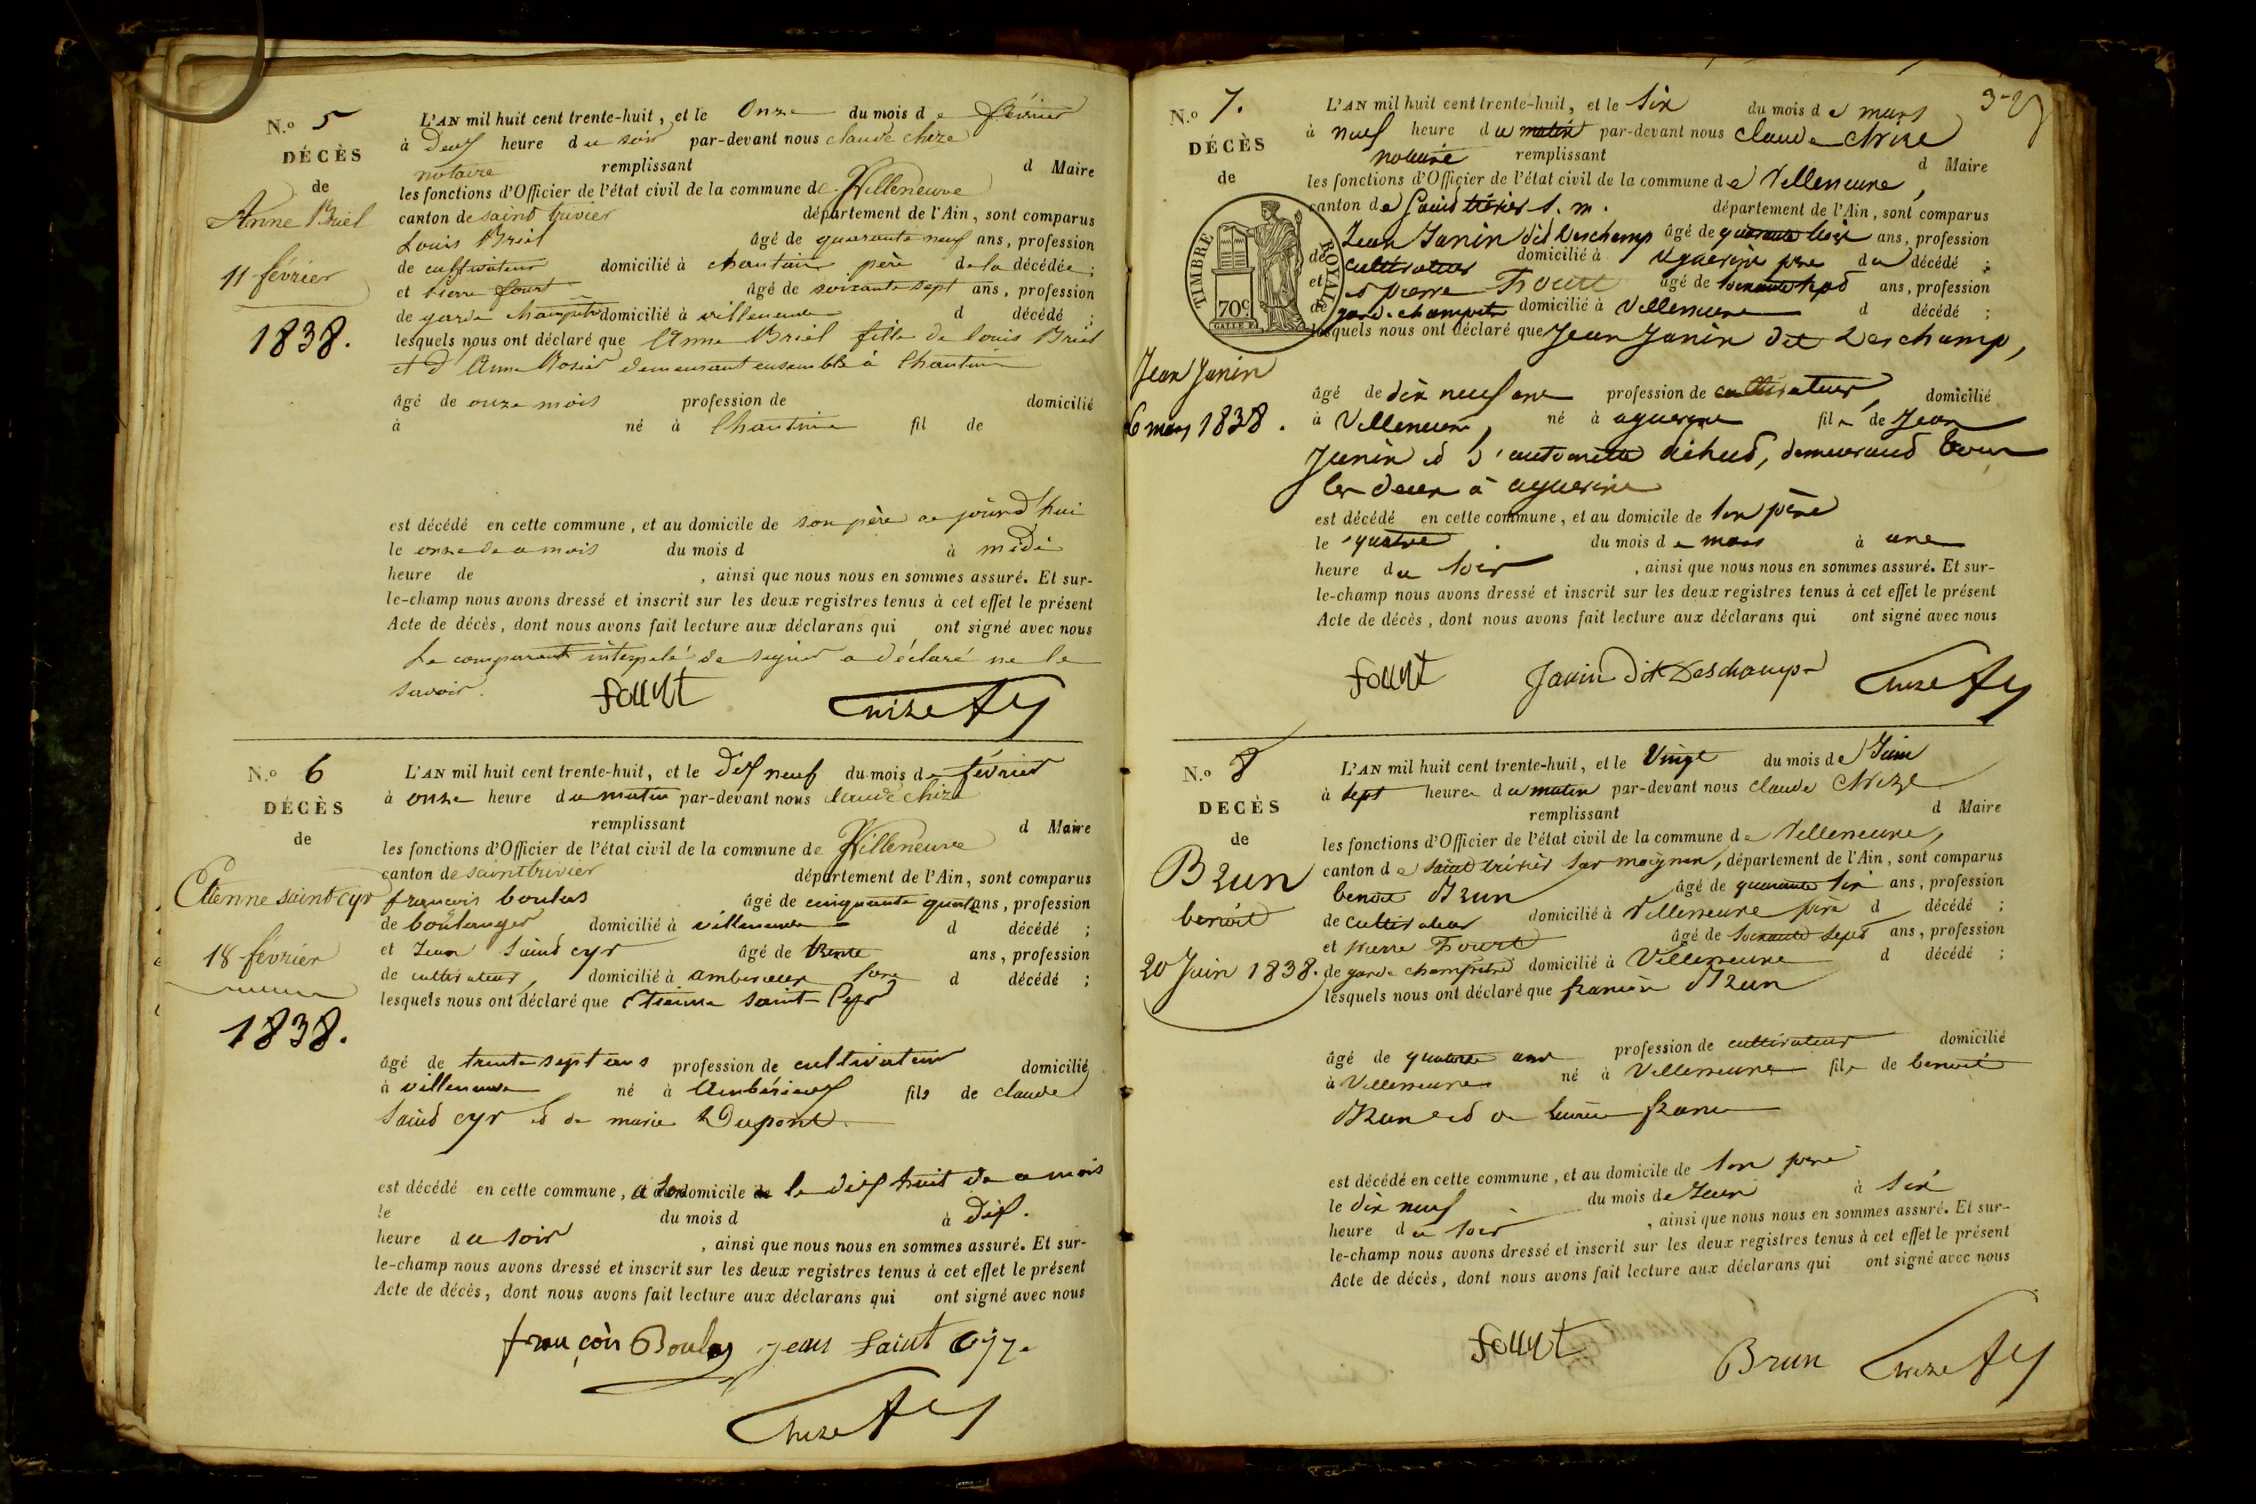 N.o 5
DÉCÈS
de
Anne Briel
11 février
1838.
L'AN mil huit cent trente-huit, et le Onze du mois de février
à Deux heure du soir par-devant nous claude chize
notaire remplissant d Maire
les fonctions d'Officier de l'état civil de la commune de Villeneuve
canton de saint trivier département de l'Ain, sont comparus
Louis Briel âgé de quarante neuf ans, profession
de cultivateur domicilié à chantain père de la décédée;
et pierre fourt âgé de soixante sept ans, profession
de garde champêtre domicilié à villeneuve d décédé ;
lesquels nous ont déclaré que Anne Briel fille de louis Briel
et d'Anne Rosier demeurant ensemble à Chantain
âgé de onze mois profession de domicilié
à né à Chantain fil de
est décédé en cette commune, et au domicile de son père ce jourd'hui
le onze de ce mois du mois d à midi
heure de , ainsi que nous nous en sommes assuré. Et sur-
le-champ nous avons dressé et inscrit sur les deux registres tenus à cet effet le présent
Acte de décès, dont nous avons fait lecture aux déclarans qui ont signé avec nous
Le comparant interpelé de signer a déclaré ne le
savoir.
fourt Chize
N.o 6
DÉCÈS
de
Etienne saint cyr
18 février
1838.
L'AN mil huit cent trente-huit, et le dix neuf du mois de février
à onze heure du matin par-devant nous claude chize
remplissant d Maire
les fonctions d'Officier de l'état civil de la commune de Villeneuve
canton de saint trivier département de l'Ain, sont comparus
françois boulas âgé de cinquante quatre ans, profession
de boulanger domicilié à villeneuve d décédé ;
et Jean Saint cyr âgé de trente ans, profession
de cultivateur, domicilié à amberieux frere d décédé ;
lesquels nous ont déclaré que Etienne saint Cyr
âgé de trente sept ans profession de cultivateur domicilié
à villeneuve né à Ambérieux fils de claude
Saint cyr et de marie Dupont.
est décédé en cette commune, a son domicile le dix huit de ce mois
le du mois d à dix.
heure du soir , ainsi que nous nous en sommes assuré. Et sur-
le-champ nous avons dressé et inscrit sur les deux registres tenus à cet effet le présent
Acte de décès, dont nous avons fait lecture aux déclarans qui ont signé avec nous
françois Boulas jean Saint Cyr.
Chize
N.o 7.
DÉCÈS
de
TIMBRE ROYAL
70c
Jean Janin
6 mars 1838.
L'AN mil huit cent trente-huit, et le six du mois de mars
à neuf heure du matin par-devant nous claude chize
notaire remplissant d Maire
les fonctions d'Officier de l'état civil de la commune de Villeneuve,
canton de saint trivier s. m. département de l'Ain, sont comparus
Jean Janin dit Deschamp âgé de quarante trois ans, profession
de cultivateur domicilié à aguereins père du décédé ;
et et pierre Fourt âgé de soixante sept ans, profession
de garde-champêtre domicilié à Villeneuve d décédé ;
lesquels nous ont déclaré que Jean Janin dit Deschamp,
âgé de dix neuf ans profession de cultivateur, domicilié
à Villeneuve, né à aguereins fils de Jean
Janin et d'antoinette dehud, demeurant tous
les deux à aguereins
est décédé en cette commune, et au domicile de son père
le quatre du mois de mars à une
heure du soir , ainsi que nous nous en sommes assuré. Et sur-
le-champ nous avons dressé et inscrit sur les deux registres tenus à cet effet le présent
Acte de décès, dont nous avons fait lecture aux déclarans qui ont signé avec nous
fourt Janin dit Deschamps Chize
N.o 8
DECÈS
de
Brun
benoit
20 Juin 1838.
L'AN mil huit cent trente-huit, et le Vingt du mois de Juin
à sept heure du matin par-devant nous claude Chize
remplissant d Maire
les fonctions d'Officier de l'état civil de la commune de Villeneuve,
canton de saint trivier sur moignan, département de l'Ain, sont comparus
benoit Brun âgé de quarante six ans, profession
de cultivateur domicilié à Villeneuve père d décédé ;
et pierre Fourt âgé de soixante sept ans, profession
de garde champêtre domicilié à Villeneuve d décédé ;
lesquels nous ont déclaré que Brun
âgé de quatorze ans profession de cultivateur domicilié
à Villeneuve né à Villeneuve fils de benoit
Brun et de
est décédé en cette commune, et au domicile de son père
le dix neuf du mois de Juin à six
heure du soir , ainsi que nous nous en sommes assuré. Et sur-
le-champ nous avons dressé et inscrit sur les deux registres tenus à cet effet le présent
Acte de décès, dont nous avons fait lecture aux déclarans qui ont signé avec nous
fourt Brun Chize